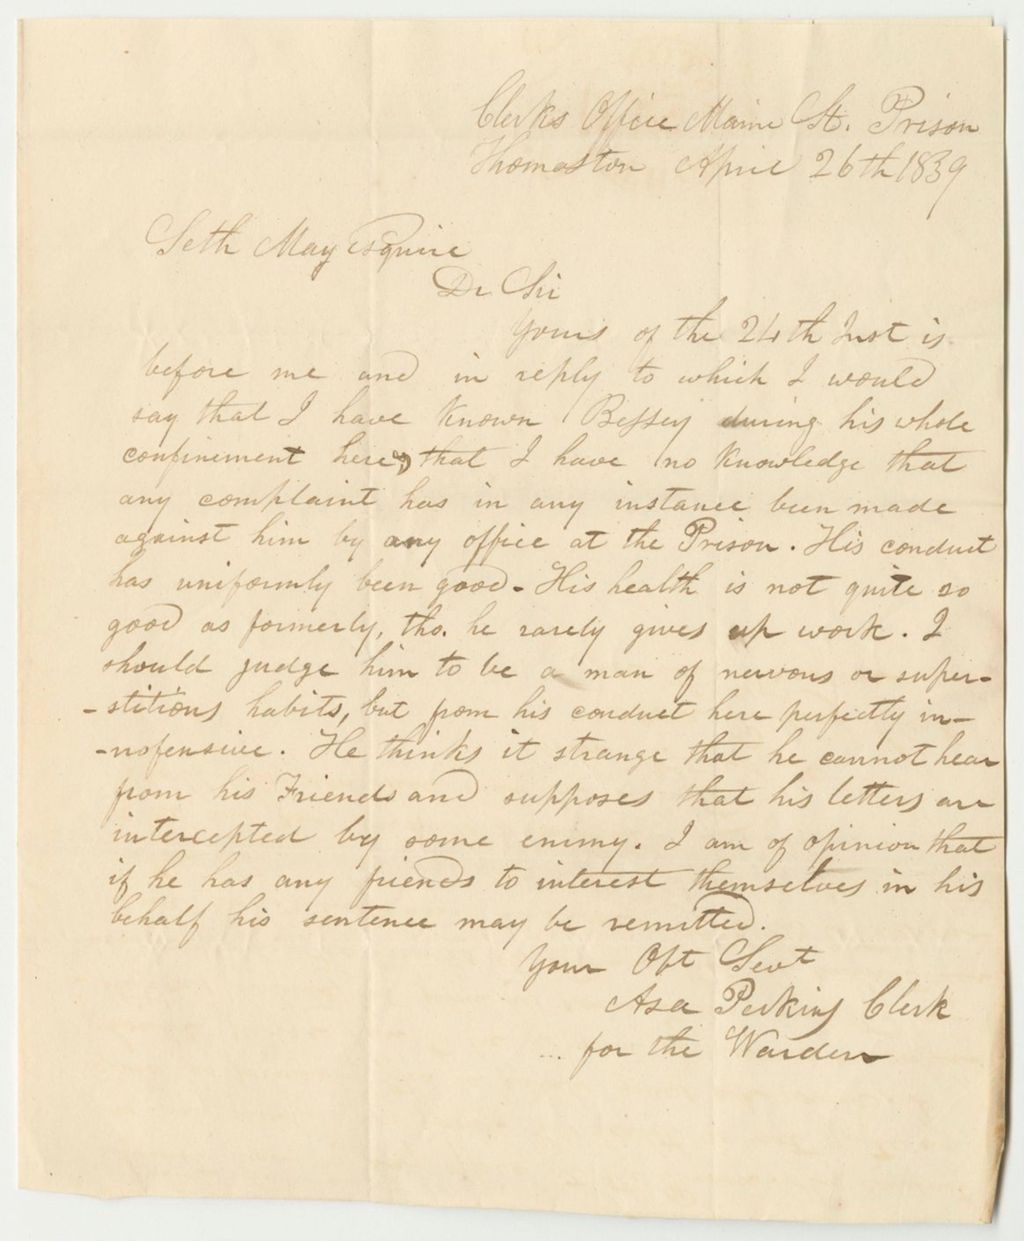 Clerks Office Maine St. Prison
Thomaston April 26th 1839
Seth May Esquire
Dr Sir
Yours of the 24th Inst is
before me and in reply to which I would
say that I have Known Bessey during his whole
confinement here, that I have no Knowledge that
any complaint has in any instance been made
against him by any office at the Prison. His conduct
has uniformly been good - His health is not quite so
good as formerly, tho. he rarely gives up work. I
should judge him to be a man of nervous or super-
-stitious habits, but from his conduct here perfectly in-
-nofensive. He thinks it strange that he cannot hear
from his Friends and supposes that his letters are
intercepted by some enimy. I am of opinion that
if he has any friends to interest themselves in his
behalf his sentence may be remitted.
Your Obt Sevt
Asa Perkins Clerk
... for the Warden